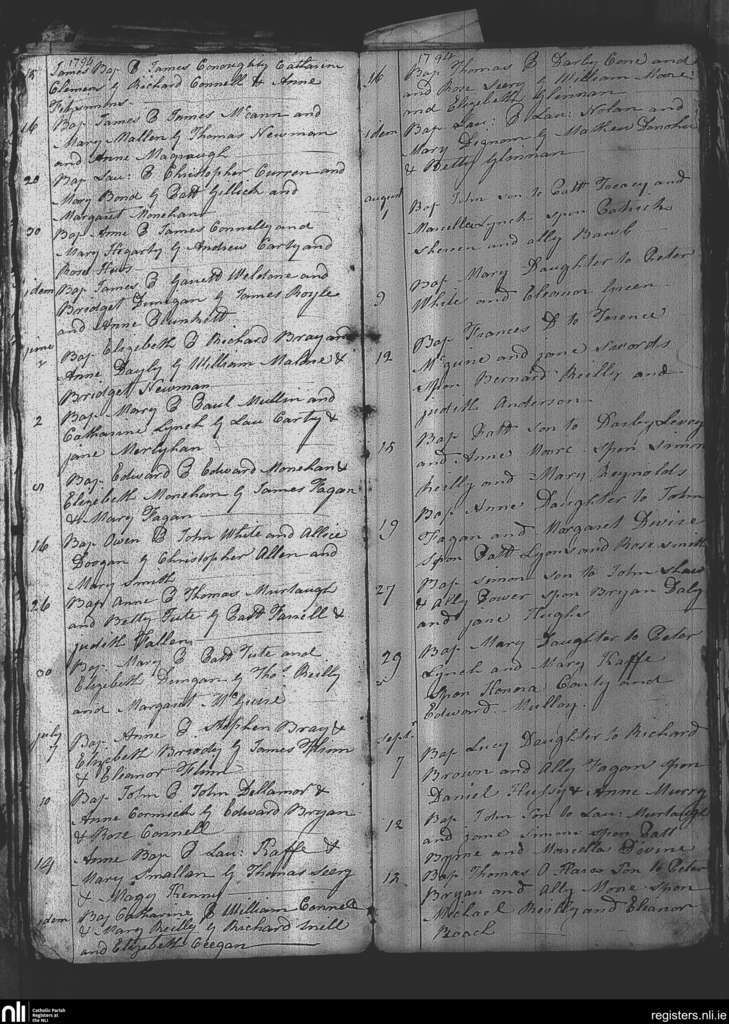 1794
18 James Bap P James Conoughty Catharine
Clemen by Richard Connell & Anne
Fitzsimons
16 Bap James P James McCann and
Mary Mallen by Thomas Newman
and Anne Magraugh
20 Bap Lau: P Christopher Curren and
Mary Bond by Patt Gillich and
Margaret Monehan
30 Bap Anne P James Connelly and
Mary Hegarty by Andrew Carty and
Rose
idem Bap James P Garrett Weldone and
Bridget Dunigan by James Boyle
and Anne Plunkett
june
2 Bap Elizebeth P Richard Bray and
Anne Dayly by William Malone &
Bridgett Newman
2 Bap Mary P Paul Mullin and
Catharine Lynch by Lau Carty &
jane
5 Bap Edward P Edward Monehan &
Elizebeth Monehan by James Fagan
& Mary Fagan
16 Bap Owen P John White and Allice
Doogan by Christopher Allen and
Mary Smith
26 Bap Anne P Thomas Murtaugh
and Betty Tute by Patt Farrell &
judith Fallen
30 Bap Mary P Patt Tute and
Elizebeth Dunigan by Thos Reilly
and Margaret McGuire
july
7 Bap Anne P Stephen Bray &
Elizebeth Broody by James Flinn
& Eleanor Flinn
10 Bap John P John Dellamar &
Anne Cormick by Edward Bryan
& Rose Connell
14 Anne Bap P Lau: Kaffe &
Mary Smallan by Thomas Seery
& Mary Kenny
idem Bap Catharine P William Connell
& Mary Reilly by Richard Snell
and Elizebeth Geegan
1794
16 Bap Thomas P Darby Cone and
and Rose Seery by William Moore
and Elizebeth Glennan
idem Bap Lau: P Lau: Nolan and
Mary Dignam by Mathew Donohue
& Betty Glennan
august
1 Bap John son to Patt Treacy and
Marcella Lynch spon Patrick
Sheeren and ally
9 Bap Mary Daughter to Peter
White and Eleanor Green
12 Bap Frances D to Terence
McGuire and jane Swords
spon Bernard Reilly and
judith Anderson
18 Bap Patt son to Darby Leavy
and Anne Moore spon Simon
Reilly and Mary Reynolds
19 Bap Anne Daughter to John
Fagan and Margaret Divine
spon Patt Lyons and Rose smith
27 Bap simon son to John Shaw
& Ally Power spon Bryan Daly
and jane Hughs
29 Bap Mary Daughter to Peter
Lynch and Mary Kaffe
Spon Honora Carty and
Edward Mulloy
septr
7 Bap Lucy Daughter to Richard
Brown and Ally Fagan spon
Daniel Hussey & Anne Murry
12 Bap John Son to Lau: Murtaugh
and jane Simons spon Patt
Byrne and Marcella Divine
13 Bap Thomas O Son to Peter
Bryan and Ally Mone spon
Michael Reilly and Eleanor
Roach
nli
Catholic Parish
Registers at
the NLI
registers.nli.ie